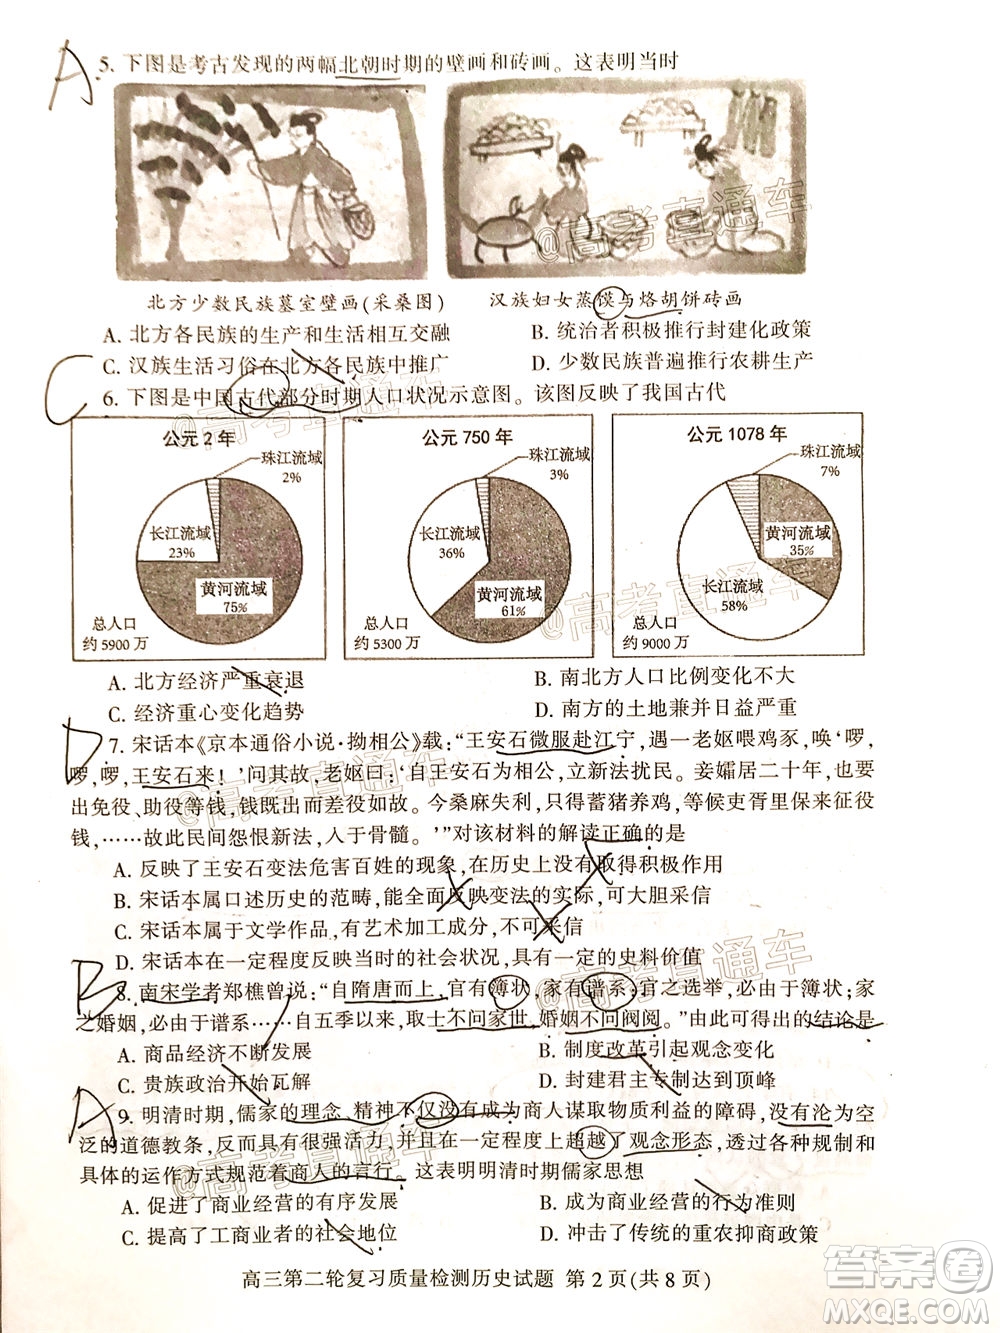 A
5. 下图是考古发现的两幅北朝时期的壁画和砖画。这表明当时
北方少数民族墓室壁画(采桑图)
汉族妇女蒸馍与烙胡饼砖画
A. 北方各民族的生产和生活相互交融
B. 统治者积极推行封建化政策
C. 汉族生活习俗在北方各民族中推广
D. 少数民族普遍推行农耕生产
C
6. 下图是中国古代部分时期人口状况示意图。该图反映了我国古代
公元 2 年
珠江流域
2%
长江流域
23%
黄河流域
75%
总人口
约 5900 万
公元 750 年
珠江流域
3%
长江流域
36%
黄河流域
61%
总人口
约 5300 万
公元 1078 年
珠江流域
7%
黄河流域
35%
长江流域
58%
总人口
约 9000 万
A. 北方经济严重衰退
B. 南北方人口比例变化不大
C. 经济重心变化趋势
D. 南方的土地兼并日益严重
D
7. 宋话本《京本通俗小说·拗相公》载:“王安石微服赴江宁，遇一老妪喂鸡豕，唤‘啰，
啰，啰，王安石来！’问其故，老妪曰:‘自王安石为相公，立新法扰民。妾孀居二十年，也要
出免役、助役等钱，钱既出而差役如故。今桑麻失利，只得蓄猪养鸡，等候吏胥里保来征役
钱，……故此民间怨恨新法，入于骨髓。’”对该材料的解读正确的是
A. 反映了王安石变法危害百姓的现象，在历史上没有取得积极作用
B. 宋话本属口述历史的范畴，能全面反映变法的实际，可大胆采信
C. 宋话本属于文学作品，有艺术加工成分，不可采信
D. 宋话本在一定程度反映当时的社会状况，具有一定的史料价值
B
8. 南宋学者郑樵曾说:“自隋唐而上，官有簿状，家有谱系；官之选举，必由于簿状；家
之婚姻，必由于谱系……自五季以来，取士不问家世，婚姻不问阀阅。”由此可得出的结论是
A. 商品经济不断发展
B. 制度改革引起观念变化
C. 贵族政治开始瓦解
D. 封建君主专制达到顶峰
A
9. 明清时期，儒家的理念、精神不仅没有成为商人谋取物质利益的障碍，没有沦为空
泛的道德教条，反而具有很强活力，并且在一定程度上超越了观念形态，透过各种规制和
具体的运作方式规范着商人的言行。这表明明清时期儒家思想
A. 促进了商业经营的有序发展
B. 成为商业经营的行为准则
C. 提高了工商业者的社会地位
D. 冲击了传统的重农抑商政策
高三第二轮复习质量检测历史试题 第 2 页(共 8 页)
@高考直通车
@高考直通车
@高考直通车
@高考直通车
@高考直通车
@高考直通车
答案圈
MXQE.COM